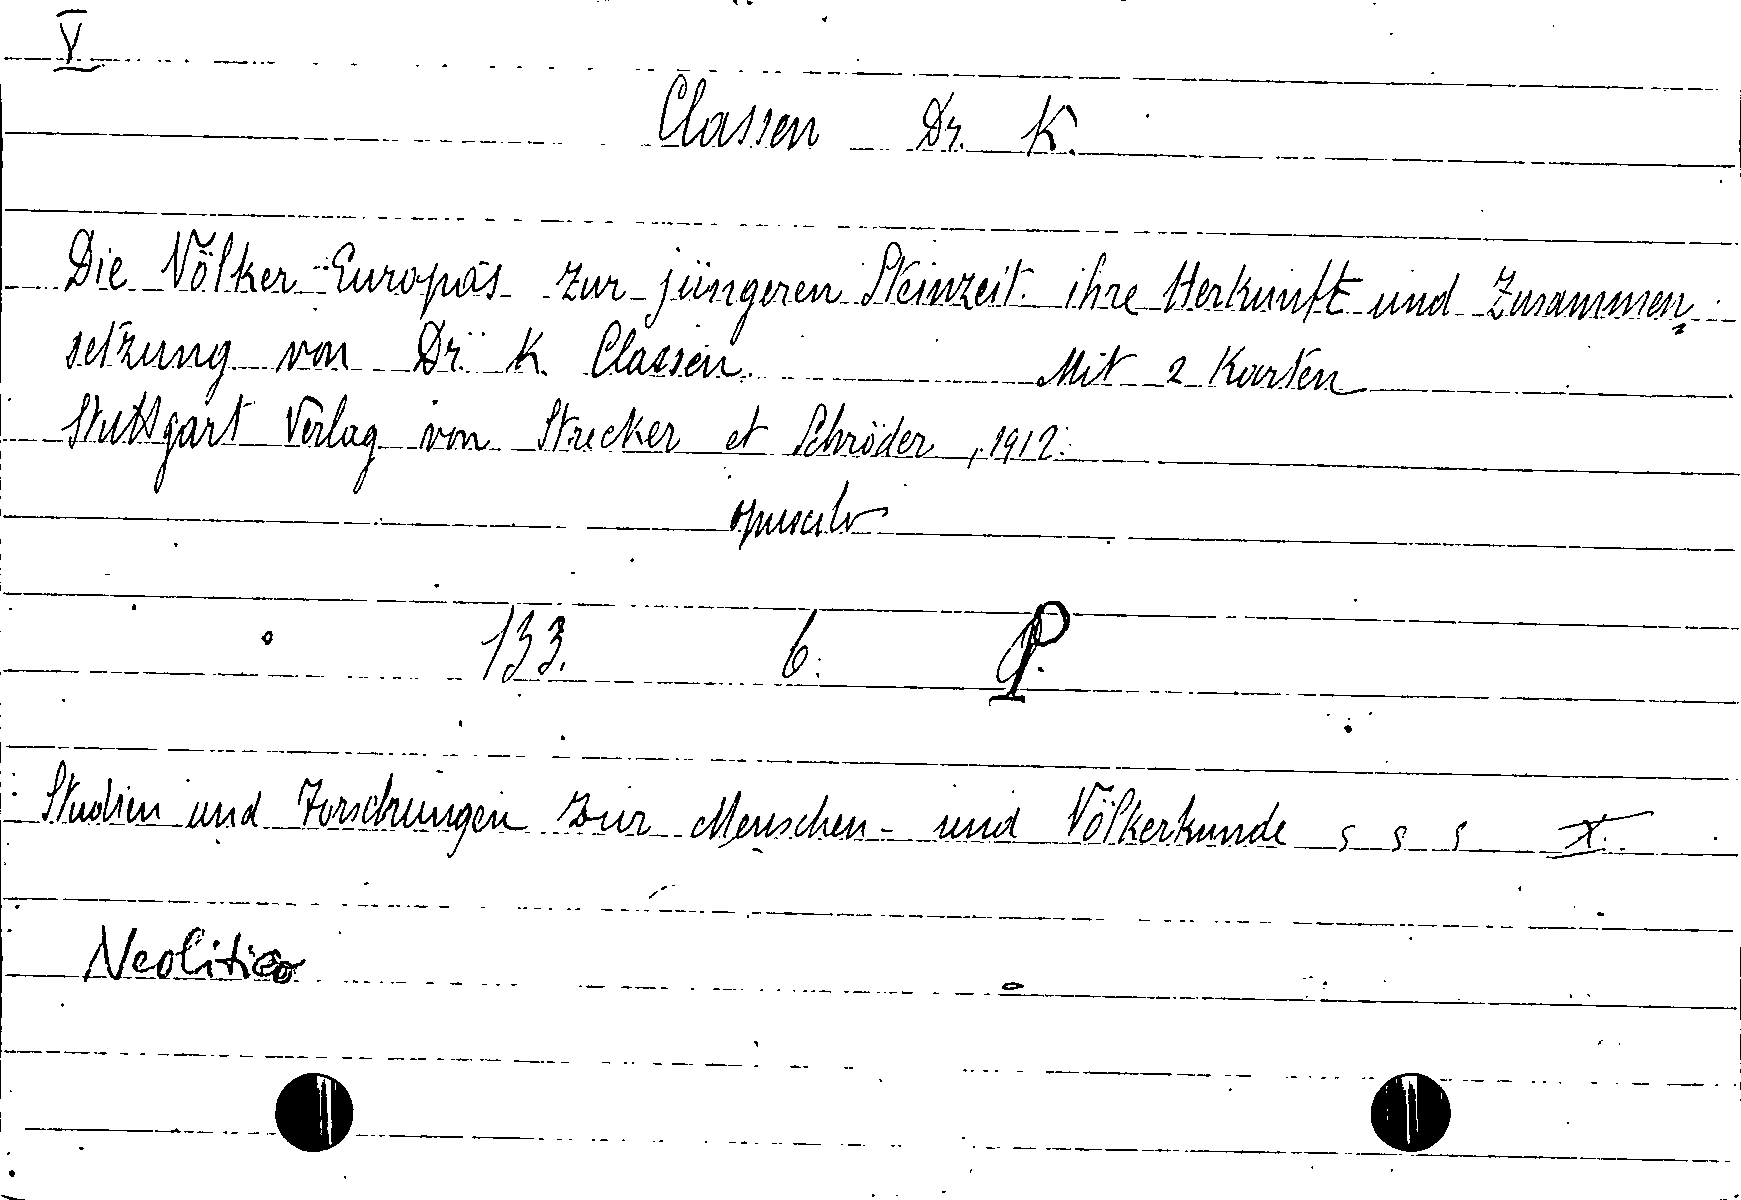 V
Classen Dr. K.
Die Völker Europas zur jüngeren Steinzeit ihre Herkunft und Zusammen=
setzung von Dr. K. Classen. Mit 2 Karten
Stuttgart Verlag von Strecker et Schröder, 1912.
opuscolo
133. 6. P.
Studien und Forschungen zur Menschen- und Völkerkunde s s s X.
Neolitico